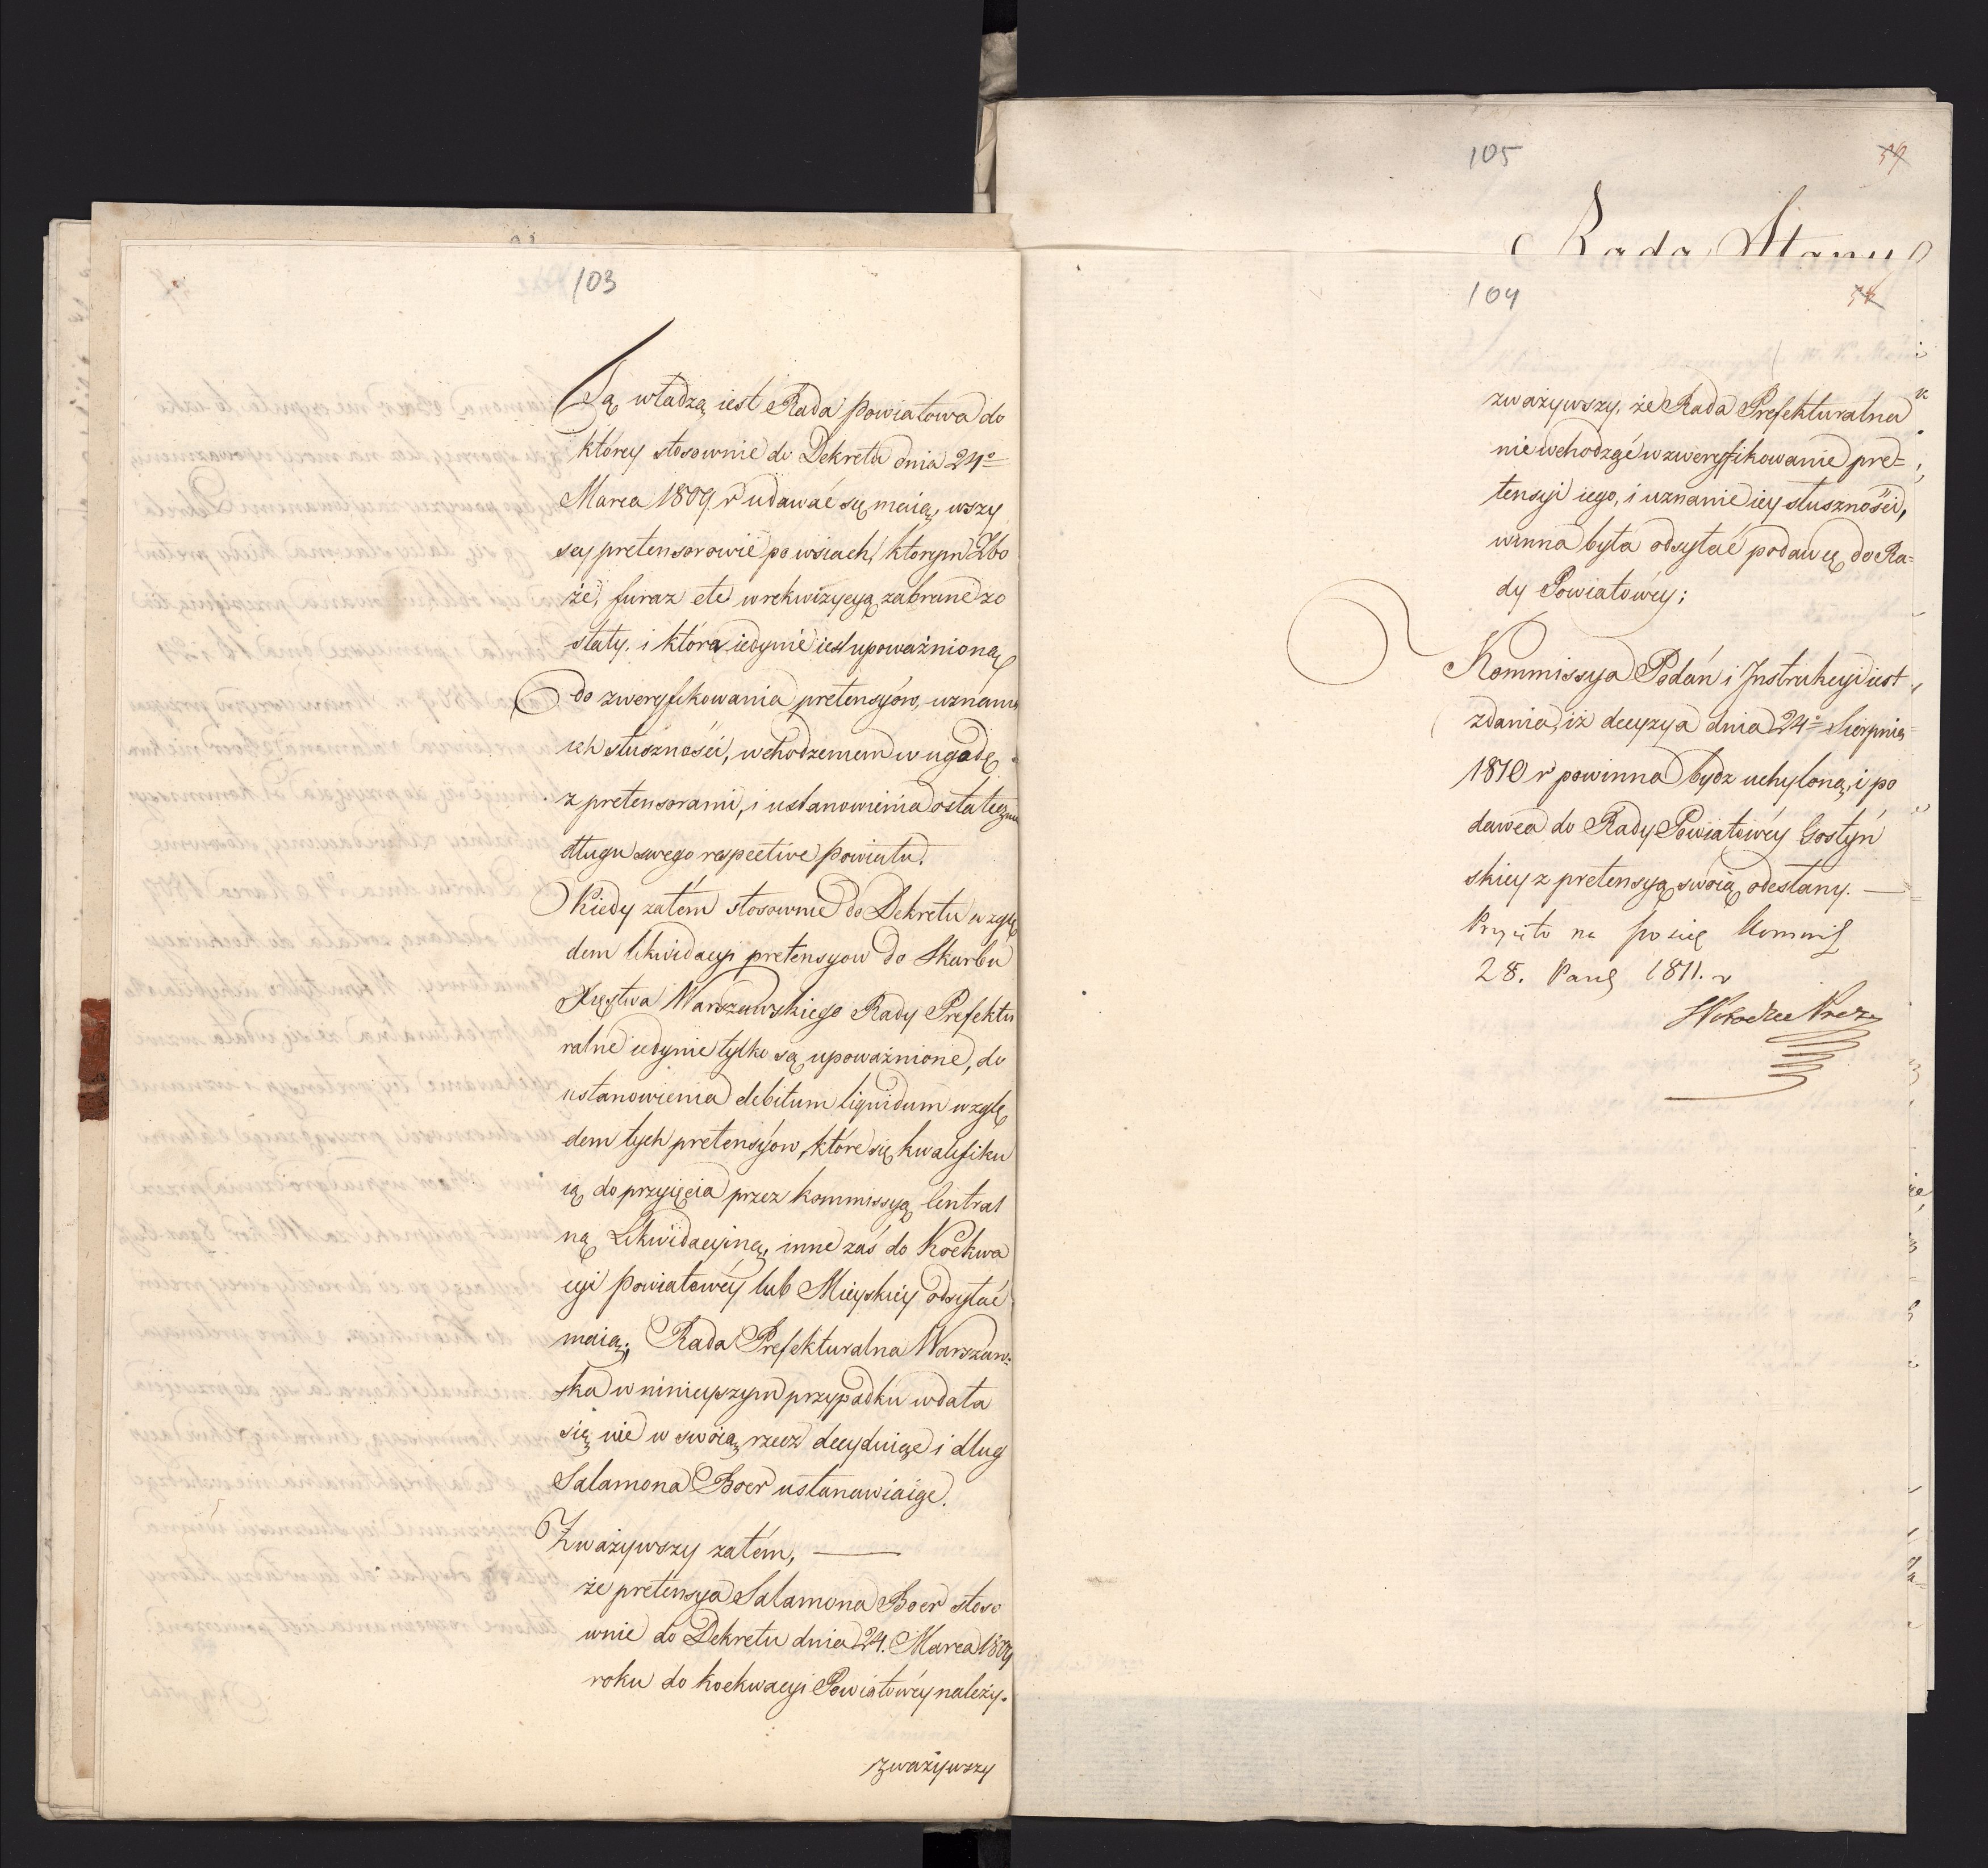 103
Tą władzą iest Rada Powiatowa do
którey stosownie do Dekretu dnia 24º
Marca 1809 r udawać się maią, wszy
scy pretensorowie po wsiach, którym Zbo
że, furaz etc w rekwizycyą zabrane zo
stały. i która iedynie iest upoważnioną
do zweryfikowania pretensyów, uznania
ich słuszności, wchodzeniem w ugodę
z pretensorami, i ustanowienia ostateczni
długu swego respective Powiatu.
Kiedy zatém stosownie do Dekretu wzglę
dem likwidacyi pretensyow do Skarbu
Xięstwa Warszawskiego Rady Prefektu
ralne iedynie tylko są upoważnione, do
ustanowienia debitum liquidum wzglę
dem tych pretensyów, które się kwalifiku
ią do przyięcia przez kommissyą Central
ną Likwidacyiną, inne zaś do Koekwa
cyi Powiatowéy lub Mieyskiéy odsyłać
maią; Rada Prefekturalna Warszaw=
ska w ninieyszym przypadku wdała
się nie w swoią rzecz decyduiąc i dług
Salamona Boer ustanawiaiąc.
Zważywszy zatém, —
że pretensya Salamona Boer stoso
wnie do Dekretu dnia 24. Marca 1809
roku do koekwacyi Powiatowéy należy.
zważywszy
105
Rada Stanu
104
zważywszy, że Rada Prefekturalna
nie wchodząc w zweryfikowanie pre=
tensyi iego, i uznanie iey słuszności,
winna była odsyłać podawcę do Ra=
dy Powiatowéy;
Kommissya Podań i Instrukcyi iest
zdania, iż decyzya dnia 24º Sierpnia
1810 r powinna bydz uchyloną, i po
dawca do Rady Powiatowéy Gostyń
skiey z pretensyą swoią odesłany. —
Przyięto na Posie Kommis
28. Paźd 1811. r